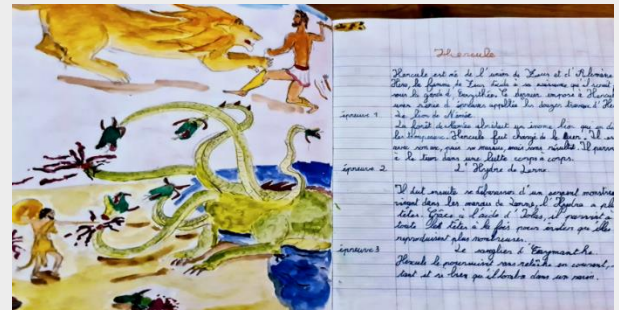 Hercule
Hercule est né de l'union de Zeus et d'Alcmène
Héra, la femme de Zeus décide à sa naissance qu'il serait
sous la garde d'Eurysthée. Ce dernier impose à Hercule
une série d'épreuves appellée les douze travaux d'He
épreuve 1 Le lion de Némée
La forêt de Némée abritait un énorme lion qui
Hercule fut chargé de le tuer. Il
à le tuer dans une lutte corps à corps.
épreuve 2 L'Hydre de Lerne
Il dut ensuite se débarasser d'un serpent monstre
vivant dans les marais de Lerne, l'Hydre a plu
têtes. Grâce à l'aide d'Iolas, il parvint à
toutes les têtes à la fois pour éviter qu'elles
reproduisent plus nombreuses.
épreuve 3 Le sanglier d'Erymanthe
Hercule le poursuivit sans relâche en courant,
tant et si bien qu'il tomba dans un ravin.